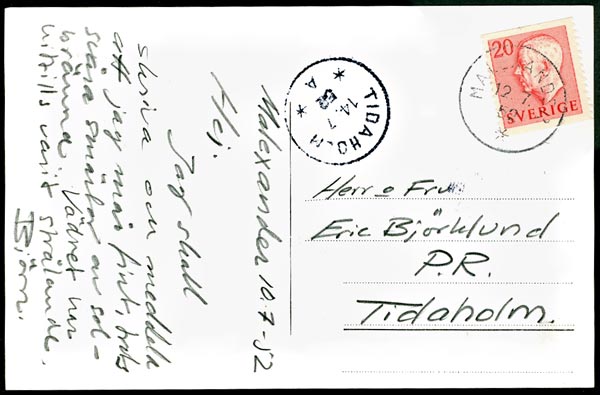 Malexander 10.7-52
Hej.
Jag skall
skriva och meddela
att jag mår fint, trots
svåra smärtor av sol-
bränna. Vädret har
hittills varit strålande.
Björn.
TIDAHOLM
14.7
52
* A *
20
SVERIGE
MALEXANDER
12.7
52
*
Herr o Fru
Eric Björklund
P.R.
Tidaholm.